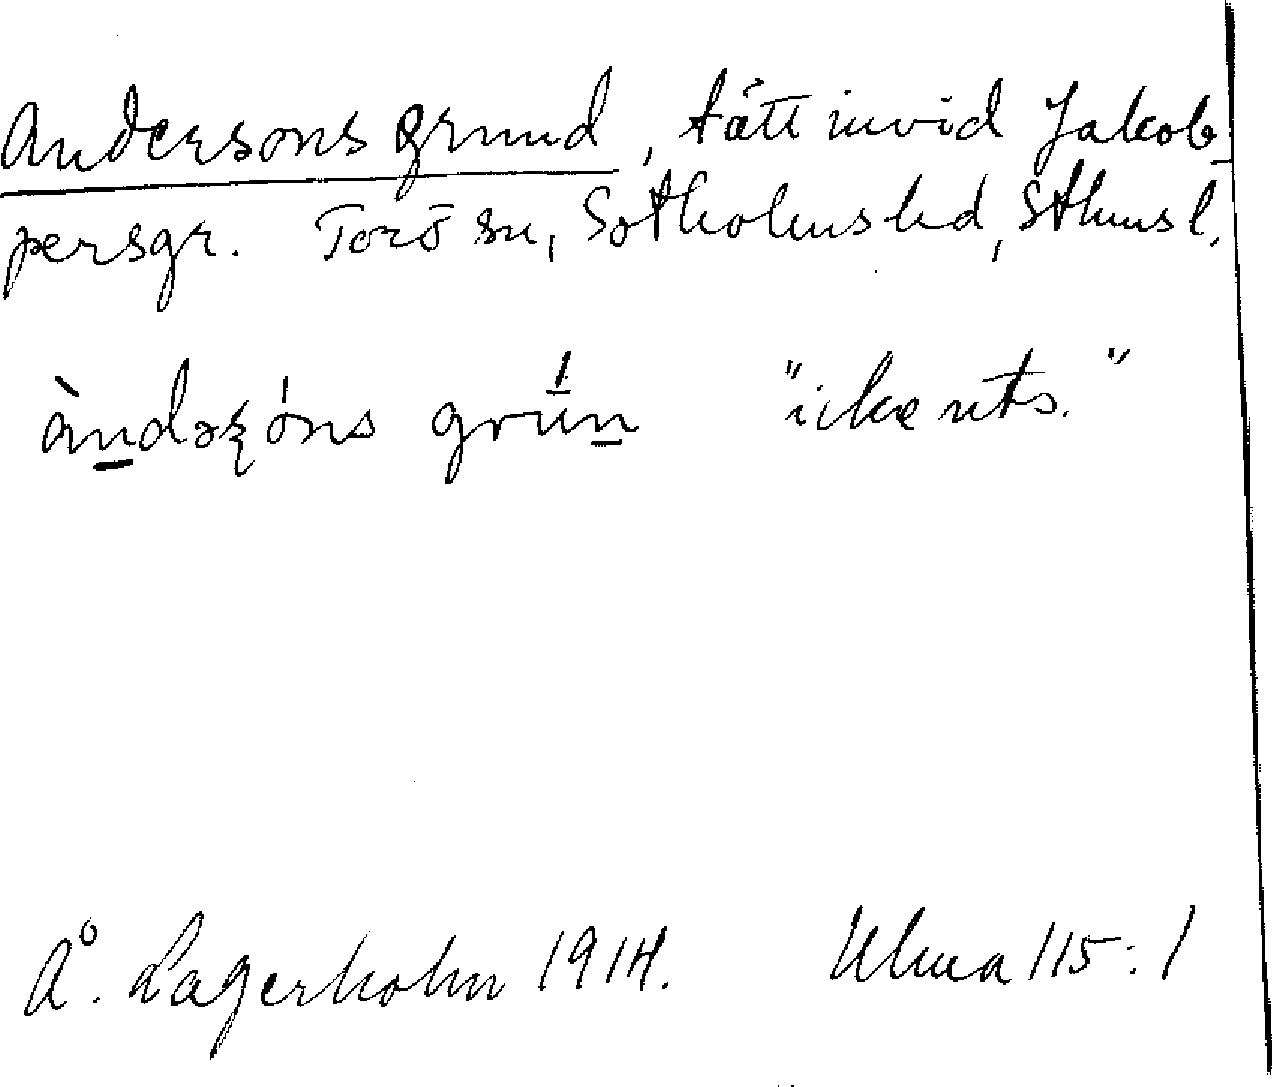 Andersons grund, tätt invid Jakob-
persgr. Torö sn, Sotholms hd, Sthms l.
àndəʂóns grún̠ "icke uts."
Å. Lagerholm 1914. Ulma 115:1